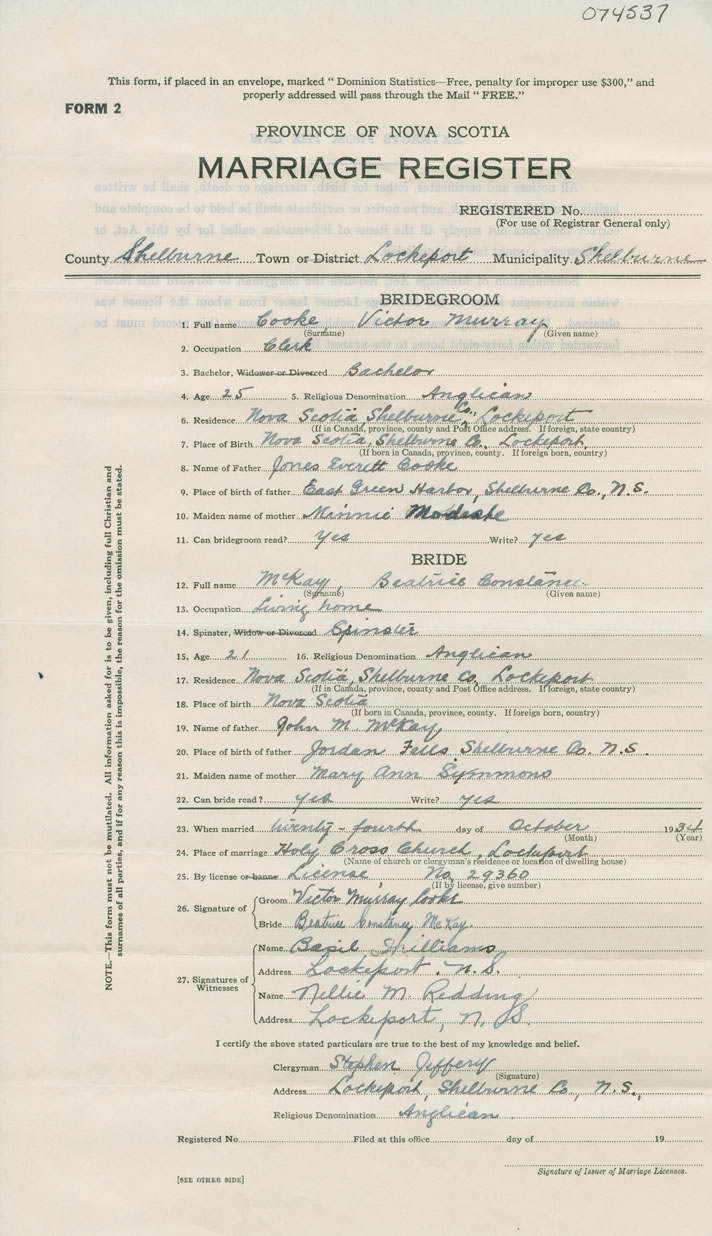 074537
This form, if placed in an envelope, marked " Dominion Statistics—Free, penalty for improper use $300," and
properly addressed will pass through the Mail " FREE."
FORM 2
PROVINCE OF NOVA SCOTIA
MARRIAGE REGISTER
REGISTERED No.
(For use of Registrar General only)
County Shelburne Town or District Lockeport Municipality Shelburne
BRIDEGROOM
1. Full name Cooke Victor Murray
(Surname) (Given name)
2. Occupation Clerk
3. Bachelor, Widower or Divorced Bachelor
4. Age 25 5. Religious Denomination Anglican
6. Residence Nova Scotia, Shelburne Co., Lockeport
(If in Canada, province, county and Post Office address. If foreign, state country)
7. Place of Birth Nova Scotia, Shelburne Co., Lockeport,
(If born in Canada, province, county. If foreign born, country)
8. Name of Father Jones Everett Cooke
9. Place of birth of father East Green Harbor, Shelburne Co., N.S.
10. Maiden name of mother Minnie
11. Can bridegroom read? Yes Write? yes
BRIDE
12. Full name McKay, Beatrice Constance
(Surname) (Given name)
13. Occupation Living home
14. Spinster, Widow or Divorced Spinster
15. Age 21 16. Religious Denomination Anglican
17. Residence Nova Scotia, Shelburne Co, Lockeport
(If in Canada, province, county and Post Office address. If foreign, state country)
18. Place of birth Nova Scotia
(If born in Canada, province, county. If foreign born, country)
19. Name of father John M. McKay
20. Place of birth of father Jordan Falls Shelburne Co. N.S.
21. Maiden name of mother Mary Ann Symmons
22. Can bride read? yes Write? yes
23. When married twenty-fourth day of October 1934
(Month) (Year)
24. Place of marriage Holy Cross Church, Lockeport
(Name of church or clergyman's residence or location of dwelling house)
25. By license or banns License No, 29360
(If by license, give number)
26. Signature of
Groom Victor Murray Cooke
Bride Beatrice Constance McKay.
27. Signatures of Witnesses
Name Basil Williams
Address Lockeport. N.S.
Name Nellie M. Redding
Address Lockeport, N.S.
I certify the above stated particulars are true to the best of my knowledge and belief.
Clergyman Stephen Jeffery
(Signature)
Address Lockeport, Shelburne Co., N.S.,
Religious Denomination Anglican.
Registered No. Filed at this office day of 19
Signature of Issuer of Marriage Licenses.
[SEE OTHER SIDE]
NOTE.—This form must not be mutilated. All information asked for is to be given, including full Christian and
surnames of all parties, and if for any reason this is impossible, the reason for the omission must be stated.